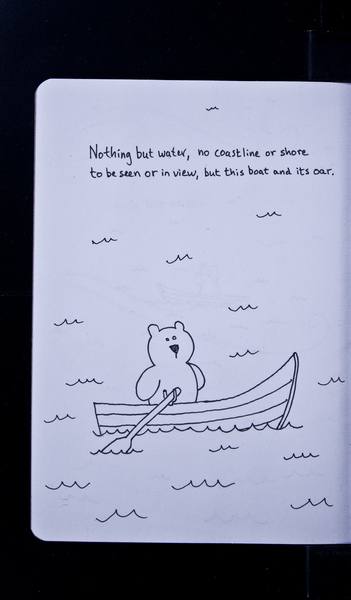 Nothing but water, no coastline or shore
to be seen or in view, but this boat and its oar.